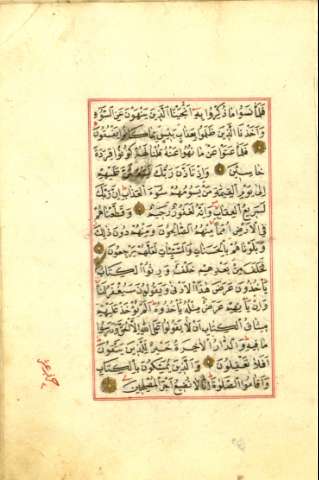 فَلَمَّا نَسُوا مَا ذُكِّرُوا بِهِ أَنْجَيْنَا الَّذِينَ يَنْهَوْنَ عَنِ السُّوءِ
وَأَخَذْنَا الَّذِينَ ظَلَمُوا بِعَذَابٍ بَئِيسٍ بِمَا كَانُوا يَفْسُقُونَ
فَلَمَّا عَتَوْا عَنْ مَا نُهُوا عَنْهُ قُلْنَا لَهُمْ كُونُوا قِرَدَةً
خَاسِئِينَ وَإِذْ تَأَذَّنَ رَبُّكَ لَيَبْعَثَنَّ عَلَيْهِمْ
إِلَى يَوْمِ الْقِيَمَةِ مَنْ يَسُومُهُمْ سُوءَ الْعَذَابِ إِنَّ رَبَّكَ
لَسَرِيعُ الْعِقَابِ وَإِنَّهُ لَغَفُورٌ رَحِيمٌ وَقَطَّعْنَاهُمْ
فِي الْأَرْضِ أُمَمًا مِنْهُمُ الصَّالِحُونَ وَمِنْهُمْ دُونَ ذَلِكَ
وَبَلَوْنَاهُمْ بِالْحَسَنَاتِ وَالسَّيِّئَاتِ لَعَلَّهُمْ يَرْجِعُونَ
فَخَلَفَ مِنْ بَعْدِهِمْ خَلْفٌ وَرِثُوا الْكِتَابَ
يَأْخُذُونَ عَرَضَ هَذَا الْأَدْنَى وَيَقُولُونَ سَيُغْفَرُ لَنَا
وَإِنْ يَأْتِهِمْ عَرَضٌ مِثْلُهُ يَأْخُذُوهُ أَلَمْ يُؤْخَذْ عَلَيْهِمْ
مِيثَاقُ الْكِتَابِ أَنْ لَا يَقُولُوا عَلَى اللَّهِ إِلَّا الْحَقَّ وَدَرَسُوا
مَا فِيهِ وَالدَّارُ الْآخِرَةُ خَيْرٌ لِلَّذِينَ يَتَّقُونَ
أَفَلَا تَعْقِلُونَ وَالَّذِينَ يُمَسِّكُونَ بِالْكِتَابِ
وَأَقَامُوا الصَّلَوةَ إِنَّا لَا نُضِيعُ أَجْرَ الْمُصْلِحِينَ